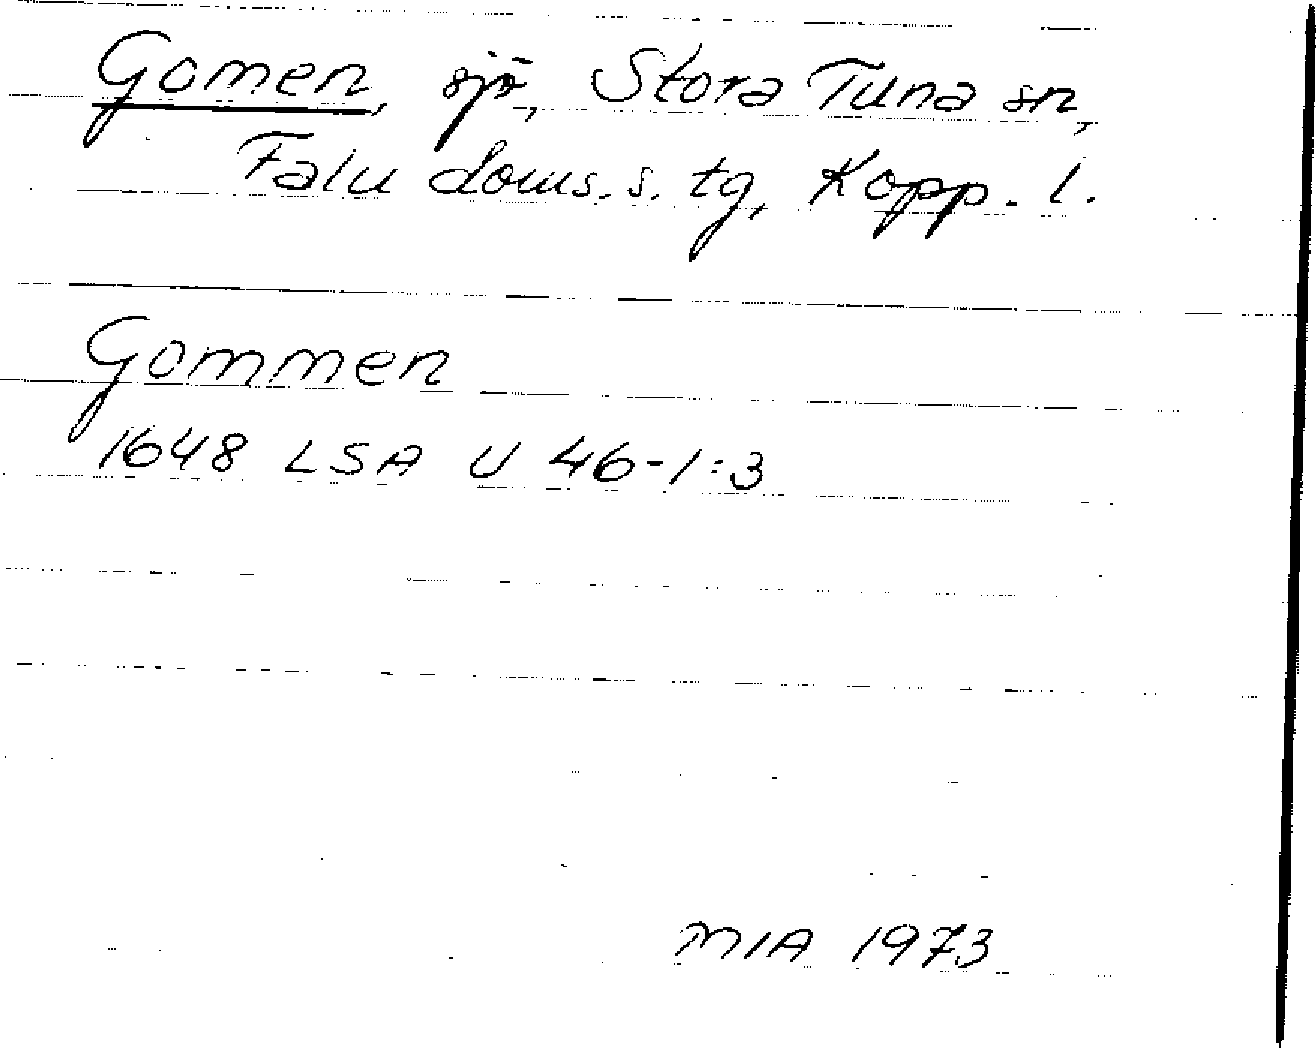 Gomen, sjö, Stora Tuna sn,
Falu doms. s. tg, Kopp. l.
Gommen
1648 LSA U 46-1:3
MIA 1973